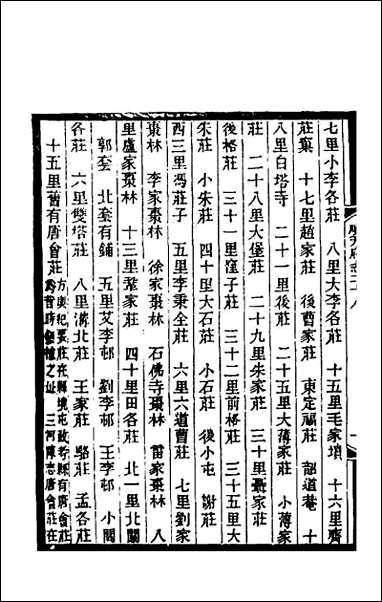 七里小李各莊　八里大李各莊　十五里毛家墳　十六里齊
莊窠　十七里趙家莊　後曹家莊　東定福莊　韶道巷　十
八里白塔寺　二十一里後莊　二十五里大薄家莊　小薄家
莊　二十八里大堡莊　二十九里朱家莊　三十里聶家莊
後格莊　三十一里窪子莊　三十二里前格莊　三十五里大
朱莊　小朱莊　四十里大石莊　小石莊　後小屯　謝莊
西三里馮莊子　五里李秉全莊　六里六道曹莊　七里劉家
棗林　李家棗林　徐家棗林　石佛寺棗林　雷家棗林　八
里盧家棗林　十三里龔家莊　四十里田各莊　北一里北關
郭套　北套有鋪　五里艾李邨　劉李邨　王李邨　小閻
各莊　六里雙塔莊　八里溝北莊　王家莊　駱莊　孟各莊
十五里舊有唐會莊